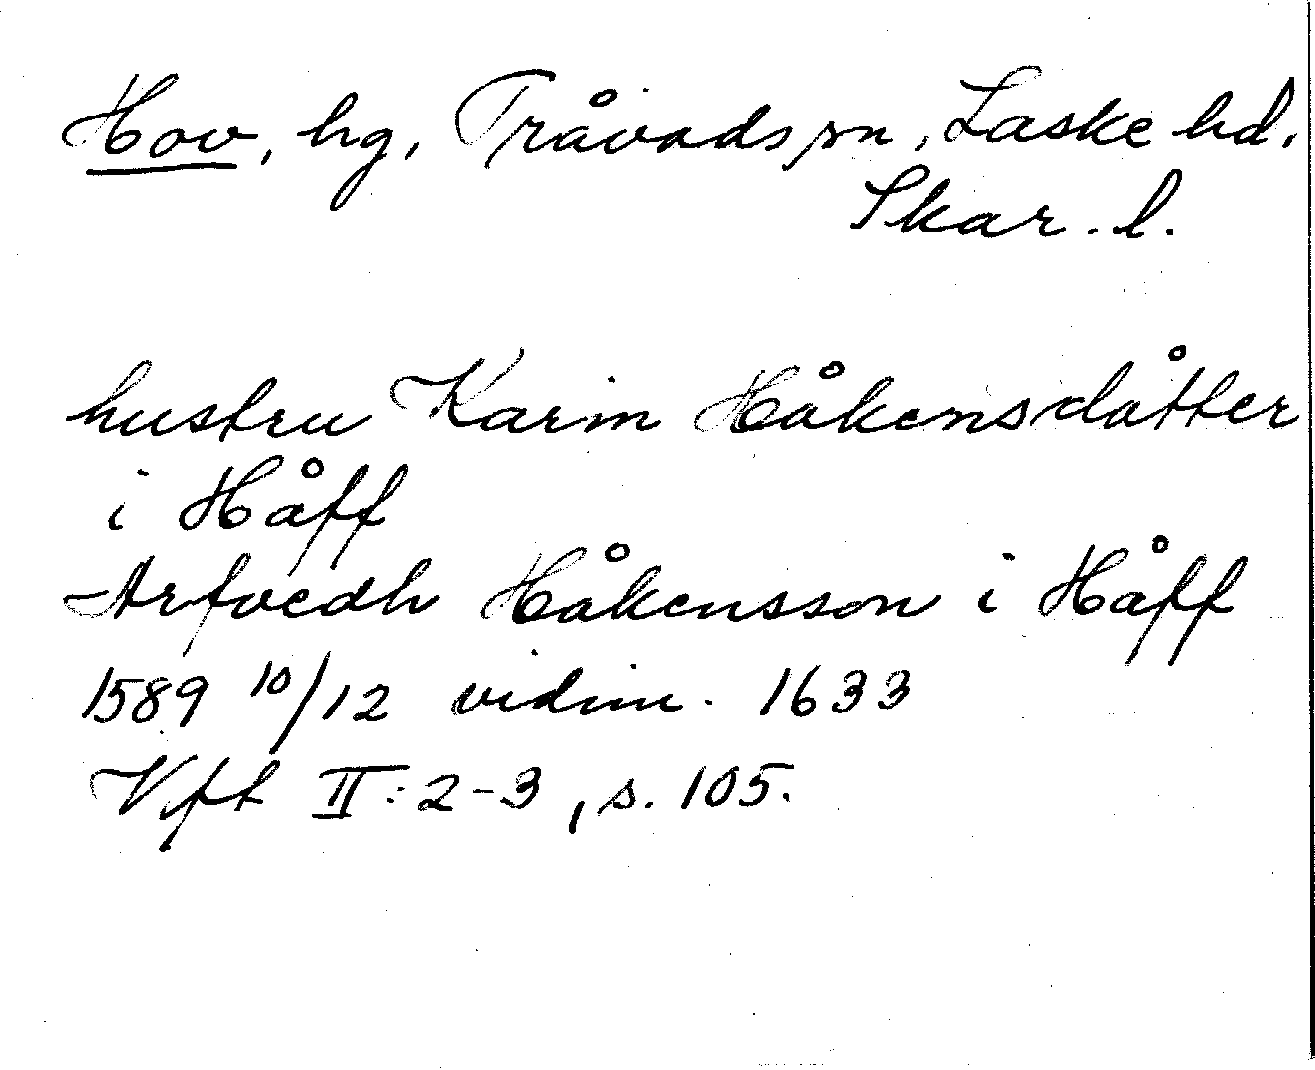 Hov, hg, Tråvads sn, Laske hd.
Skar. l.
hustru Karin Håkensdåtter
i Håff
Arfvedh Håkensson i Håff
1589 10/12 vidim. 1633
Vft II: 2-3, s. 105.